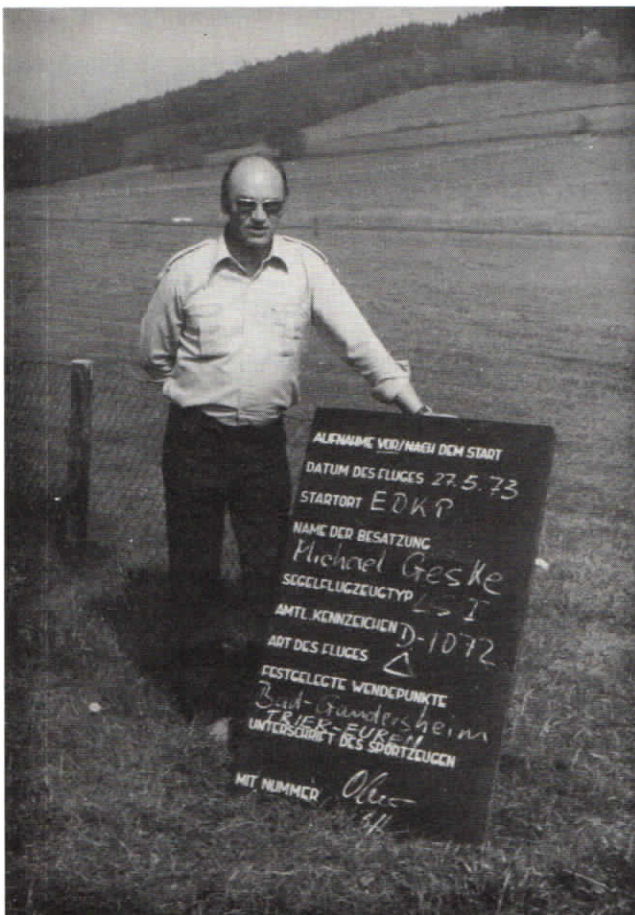 AUFNAHME VOR/NACH DEM START
DATUM DES FLUGES 27.5.73
STARTORT EDKP
NAME DER BESATZUNG
Michael Geske
SEGELFLUGZEUGTYP LS I
AMTL. KENNZEICHEN D-1072
ART DES FLUGES △
FESTGELEGTE WENDEPUNKTE
Bad-Gandersheim
TRIER-EUREN
UNTERSCHRIFT DES SPORTZEUGEN
MIT NUMMER